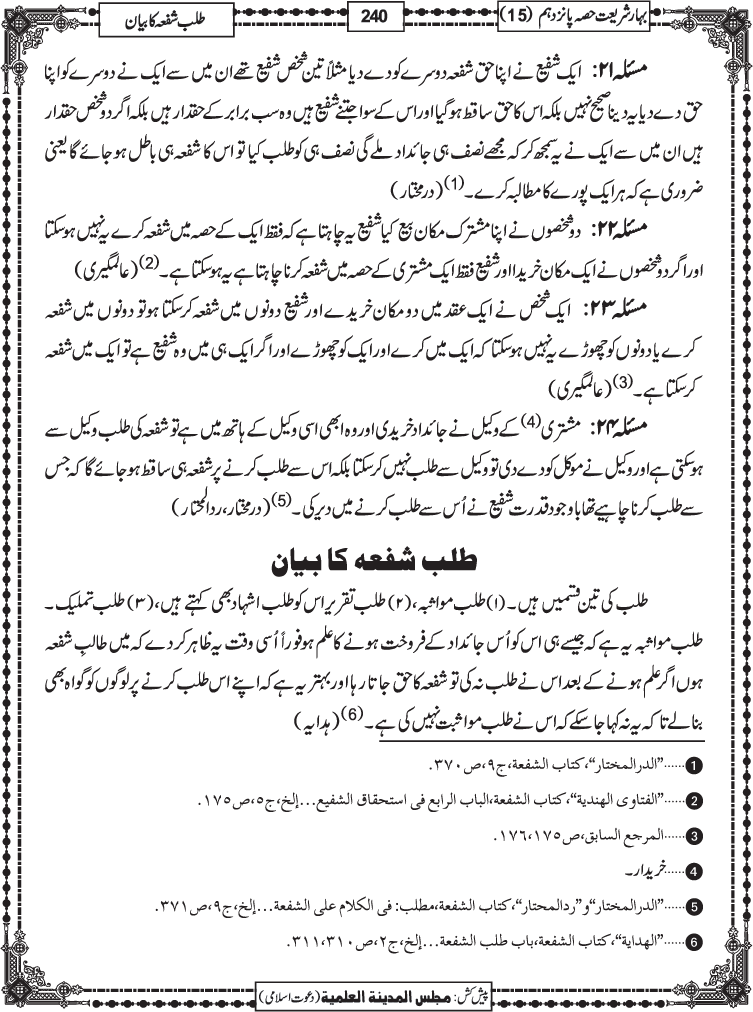 بہارِشریعت حصہ پانزدہم (15)
240
طلب شفعہ کا بیان
مسئلہ ۲۱: ایک شفیع نے اپنا حق شفعہ دوسرے کو دے دیا مثلاً تین شخص شفیع تھے ان میں سے ایک نے دوسرے کو اپنا
حق دے دیا یہ دینا صحیح نہیں بلکہ اس کا حق ساقط ہوگیا اور اس کے سوا جتنے شفیع ہیں وہ سب برابر کے حقدار ہیں بلکہ اگر دو شخص حقدار
ہیں ان میں سے ایک نے یہ سمجھ کر کہ مجھے نصف ہی جائداد ملے گی نصف ہی کو طلب کیا تو اس کا شفعہ ہی باطل ہو جائے گا یعنی
ضروری ہے کہ ہر ایک پورے کا مطالبہ کرے۔(1) (درمختار)
مسئلہ ۲۲: دو شخصوں نے اپنا مشترک مکان بیع کیا شفیع یہ چاہتا ہے کہ فقط ایک کے حصہ میں شفعہ کرے یہ نہیں ہوسکتا
اور اگر دو شخصوں نے ایک مکان خریدا اور شفیع فقط ایک مشتری کے حصہ میں شفعہ کرنا چاہتا ہے یہ ہوسکتا ہے۔(2) (عالمگیری)
مسئلہ ۲۳: ایک شخص نے ایک عقد میں دو مکان خریدے اور شفیع دونوں میں شفعہ کرسکتا ہو تو دونوں میں شفعہ
کرے یا دونوں کو چھوڑے یہ نہیں ہوسکتا کہ ایک میں کرے اور ایک کو چھوڑے اور اگر ایک ہی میں وہ شفیع ہے تو ایک میں شفعہ
کرسکتا ہے۔(3) (عالمگیری)
مسئلہ ۲۴: مشتری(4) کے وکیل نے جائداد خریدی اور وہ ابھی اسی وکیل کے ہاتھ میں ہے تو شفعہ کی طلب وکیل سے
ہوسکتی ہے اور وکیل نے موکل کو دے دی تو وکیل سے طلب نہیں کرسکتا بلکہ اس سے طلب کرنے پر شفعہ ہی ساقط ہو جائے گا کہ جس
سے طلب کرنا چاہیے تھا باوجود قدرت شفیع نے اُس سے طلب کرنے میں دیر کی۔(5) (درمختار، ردالمحتار)
طلب شفعہ کا بیان
طلب کی تین قسمیں ہیں۔ (۱) طلب مواثبہ، (۲) طلب تقریر اس کو طلب اشہاد بھی کہتے ہیں، (۳) طلب تملیک۔
طلب مواثبہ یہ ہے کہ جیسے ہی اس کو اُس جائداد کے فروخت ہونے کا علم ہو فوراً اُسی وقت یہ ظاہر کردے کہ میں طالبِ شفعہ
ہوں اگر علم ہونے کے بعد اس نے طلب نہ کی تو شفعہ کا حق جاتا رہا اور بہتر یہ ہے کہ اپنے اس طلب کرنے پر لوگوں کو گواہ بھی
بنالے تاکہ یہ نہ کہا جاسکے کہ اس نے طلب مواثبت نہیں کی ہے۔(6) (ہدایہ)
1......"الدرالمختار"، کتاب الشفعة، ج٩، ص٣٧٠.
2......"الفتاوی الهندیة"، کتاب الشفعة، الباب الرابع فی استحقاق الشفیع...إلخ، ج٥، ص١٧٥.
3......المرجع السابق، ص١٧٥، ١٧٦.
4......خریدار۔
5......"الدرالمختار" و"ردالمحتار"، کتاب الشفعة، مطلب: فی الکلام علی الشفعة...إلخ، ج٩، ص٣٧١.
6......"الهدایة"، کتاب الشفعة، باب طلب الشفعة...إلخ، ج٢، ص٣١٠، ٣١١.
پیش کش: مجلس المدینة العلمیة (دعوت اسلامی)